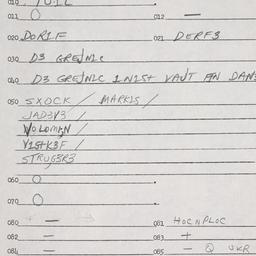 011 O 012 —
020 DORIF 021 DERF3
030 D3 GREJNIC
040 D3 GREJNIC INIST VAJT
050 SXOCK / MARKIS /
JAD3V3 /
VOLOMKN /
VISTK3F /
STRUG3R3
060 O
070 O
080 — 081 HOCNPLOC
082 — 083 +
084 — 085 — Q UKR